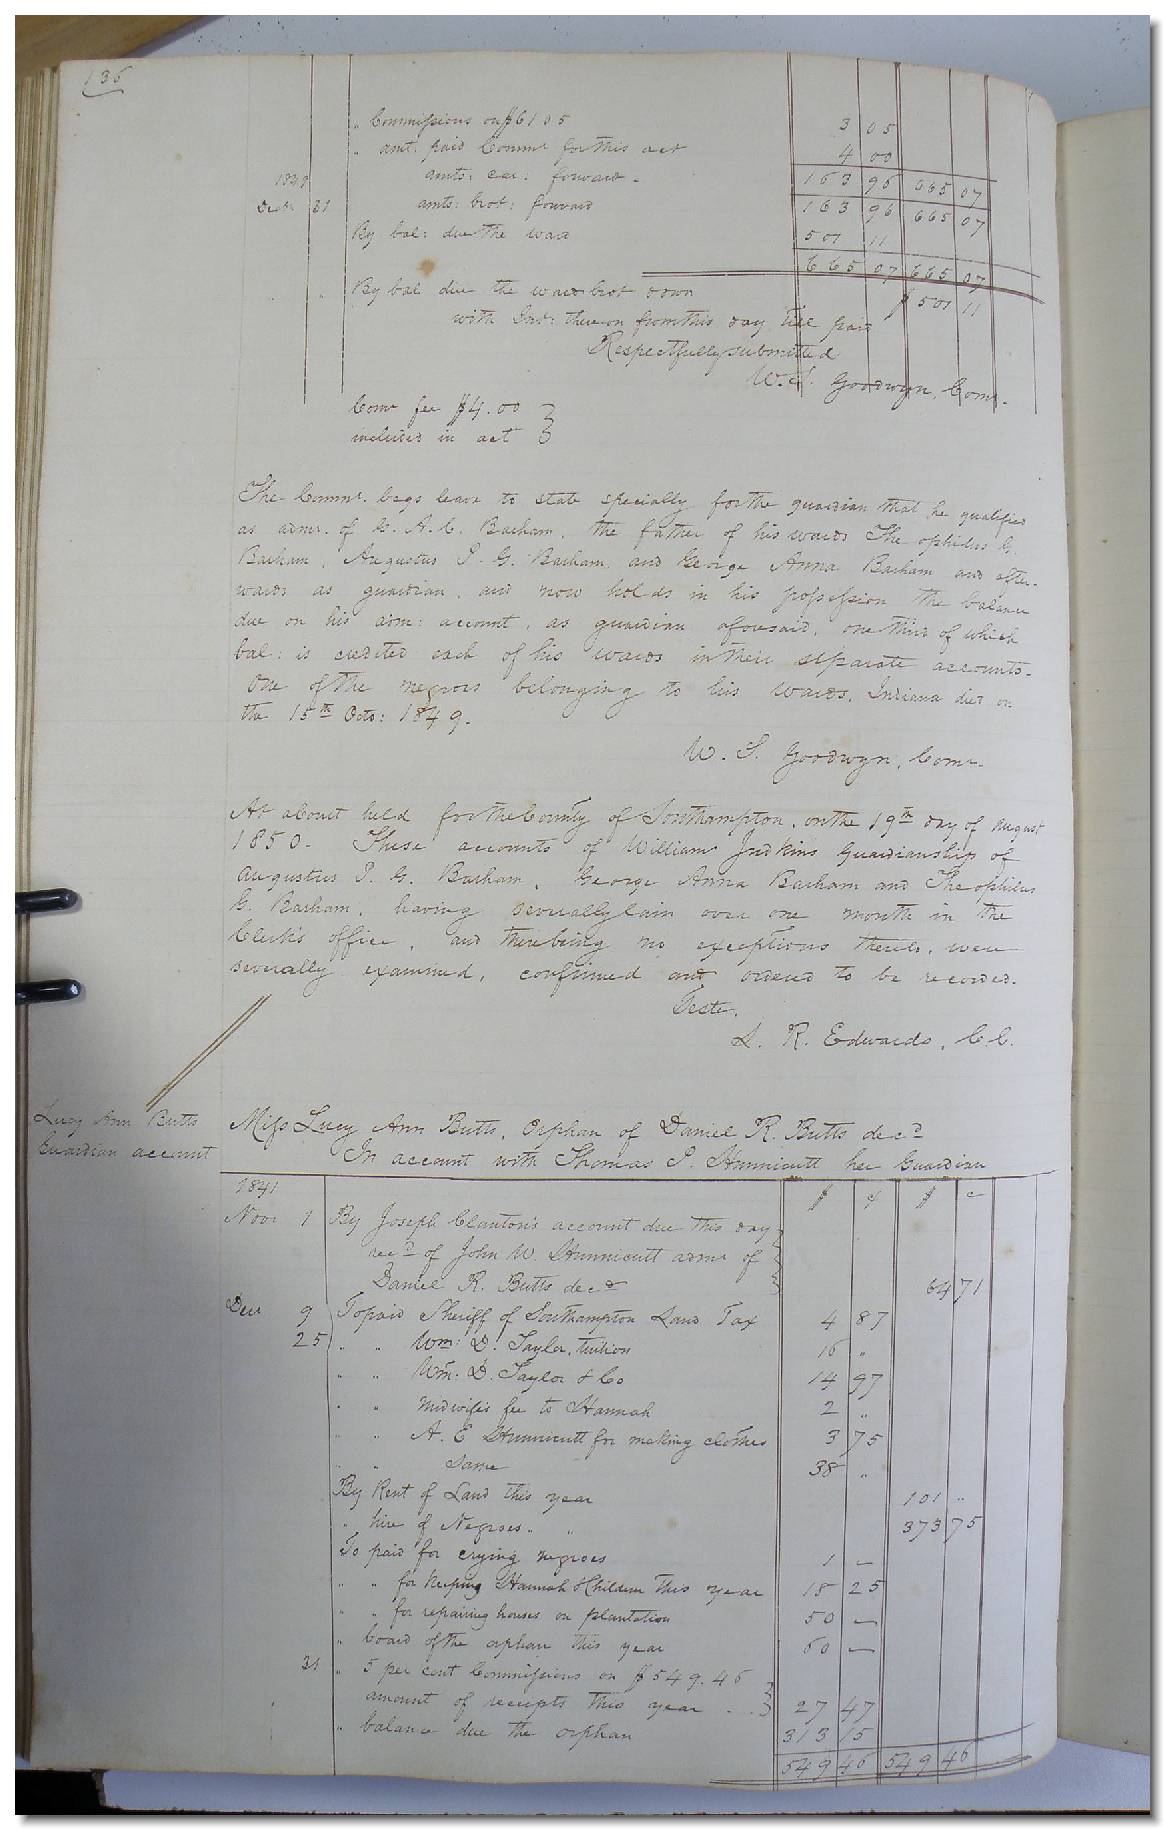 136
" Commissions on $6105 3 05
" amt: paid Comnr for this act 4 00
amts: car: forward - 163 96 665 07
1849
Dec 31 amts: brot: forward 163 96 665 07
By bal: due the ward 501 11
665 07 665 07
" By bal due the ward brot down $501 11
with Int: thereon from this day till paid
Respectfully submitted
W. S. Goodwyn, Comr.
Comr fee $4.00 }
included in act }
The Comnr. begs leave to state specially for the guardian that he qualified
as admr. of G. A. C. Barham, the father of his wards Theophilus G.
Barham, Augustus J. G. Barham and George Anna Barham and after-
wards as guardian, and now holds in his possession the balance
due on his adm: account, as guardian aforesaid, one third of which
bal: is credited each of his wards in their separate accounts.
One of the negroes belonging to his wards, Indiana died on
the 15th Octo: 1849.
W. S. Goodwyn, Comr
At a Court held for the County of Southampton, on the 19th day of August
1850. These accounts of William Judkins Guardianship of
Augustus J. G. Barham, George Anna Barham and Theophilus
G. Barham, having severally lain over one month in the
Clerk's office, and there being no exceptions thereto, were
severally examined, confirmed and ordered to be recorded.
Teste,
L. R. Edwards, C.C.
Lucy Ann Butts
Guardian account
Miss Lucy Ann Butts, Orphan of Daniel R. Butts decd
In account with Thomas J. Hunnicutt her Guardian
1841 $ c $ c
Novr 1 By Joseph Clanton's account due this day
recd of John W. Hunnicutt admr of
Daniel R. Butts decd 64 71
Decr 9 To paid Sheriff of Southampton Land Tax 4 87
25 " " Wm: D. Taylor, tuition 16 "
" " Wm: D. Taylor & Co 14 97
" " Midwife's fee to Hannah 2 "
" " A. E Hunnicutt for making clothes 3 75
" " Same 38 "
By Rent of Land this year 101 "
" hire of Negroes " " 373 75
To paid for crying negroes 1 —
" " for keeping Hannah & Children this year 18 25
" " for repairing houses on plantation 50 —
" board of the orphan this year 60 —
31 " 5 per cent Commissions on $549.46 }
amount of receipts this year . . } 27 47
" balance due the orphan 313 15
549 46 549 46